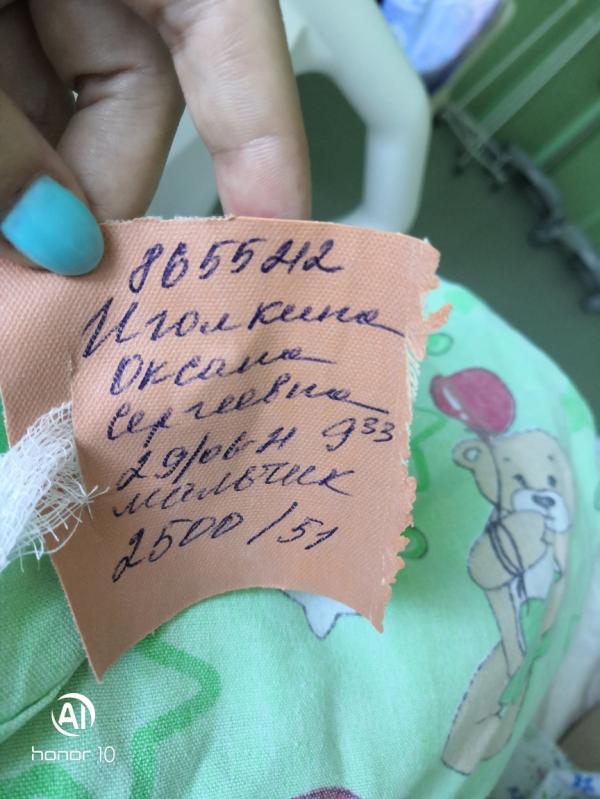 8655242
Иголкина
Оксана
Сергеевна
29/06-н 9 33
мальчик
2500/51
AI
honor 10